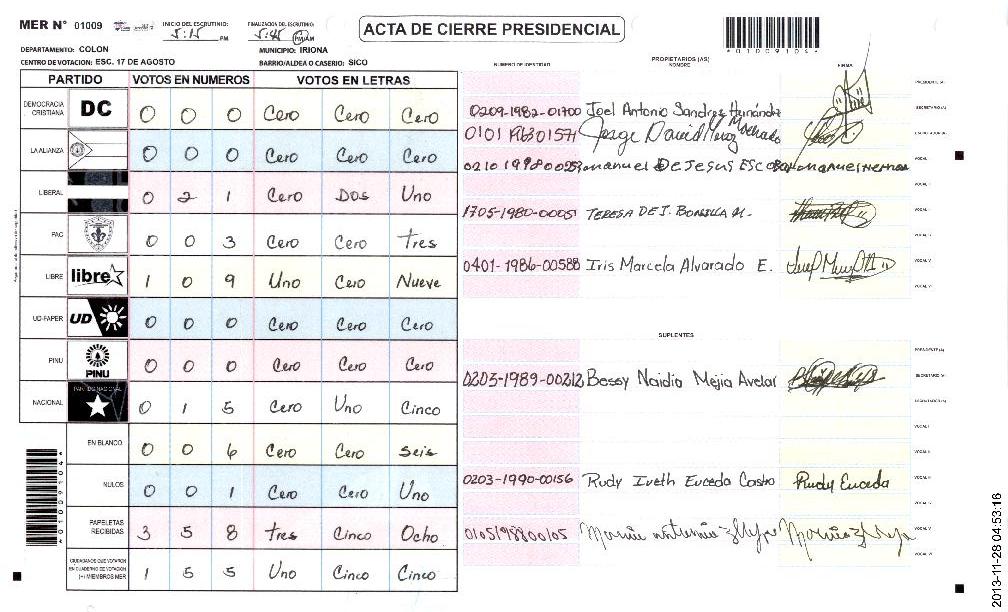 MER N° 01009
INICIO DEL ESCRUTINIO: 5:15 PM
FINALIZACION DEL ESCRUTINIO: 5:45 PM/AM
ACTA DE CIERRE PRESIDENCIAL
*01009104*
DEPARTAMENTO: COLON
MUNICIPIO: IRIONA
CENTRO DE VOTACION: ESC. 17 DE AGOSTO
BARRIO/ALDEA O CASERIO: SICO
PARTIDO VOTOS EN NUMEROS VOTOS EN LETRAS
DEMOCRACIA CRISTIANA DC 0 0 0 Cero Cero Cero
LA ALIANZA 0 0 0 Cero Cero Cero
LIBERAL 0 2 1 Cero Dos Uno
PAC 0 0 3 Cero Cero Tres
LIBRE libre 1 0 9 Uno Cero Nueve
UD-FAPER UD 0 0 0 Cero Cero Cero
PINU PINU 0 0 0 Cero Cero Cero
NACIONAL PARTIDO NACIONAL 0 1 5 Cero Uno Cinco
EN BLANCO 0 0 6 Cero Cero Seis
NULOS 0 0 1 Cero Cero Uno
PAPELETAS RECIBIDAS 3 5 8 Tres Cinco Ocho
CIUDADANOS QUE VOTARON EN CUADERNO DE VOTACION (+) MIEMBROS MER 1 5 5 Uno Cinco Cinco
*01009104*
PROPIETARIOS (AS)
NUMERO DE IDENTIDAD NOMBRE FIRMA
PRESIDENTE (A)
0209-1982-01700 Joel Antonio Sandrez Hernández SECRETARIO (A)
Jorge David
manuel De Jesus
1705-1980-00051 TERESA DE J. BONILLA M.
0401-1986-00588 Iris Marcela Alvarado E. VOCAL V
VOCAL VI
SUPLENTES
PRESIDENTE (A)
0203-1989-00212 Bessy Naidio Mejia Avelar SECRETARIO (A)
ESCRUTADOR (A)
VOCAL I
VOCAL II
0203-1990-00156 Rudy Iveth Euceda Castro Rudy Euceda VOCAL III
0105198800105 VOCAL V
VOCAL VI
2013-11-28 04:53:16